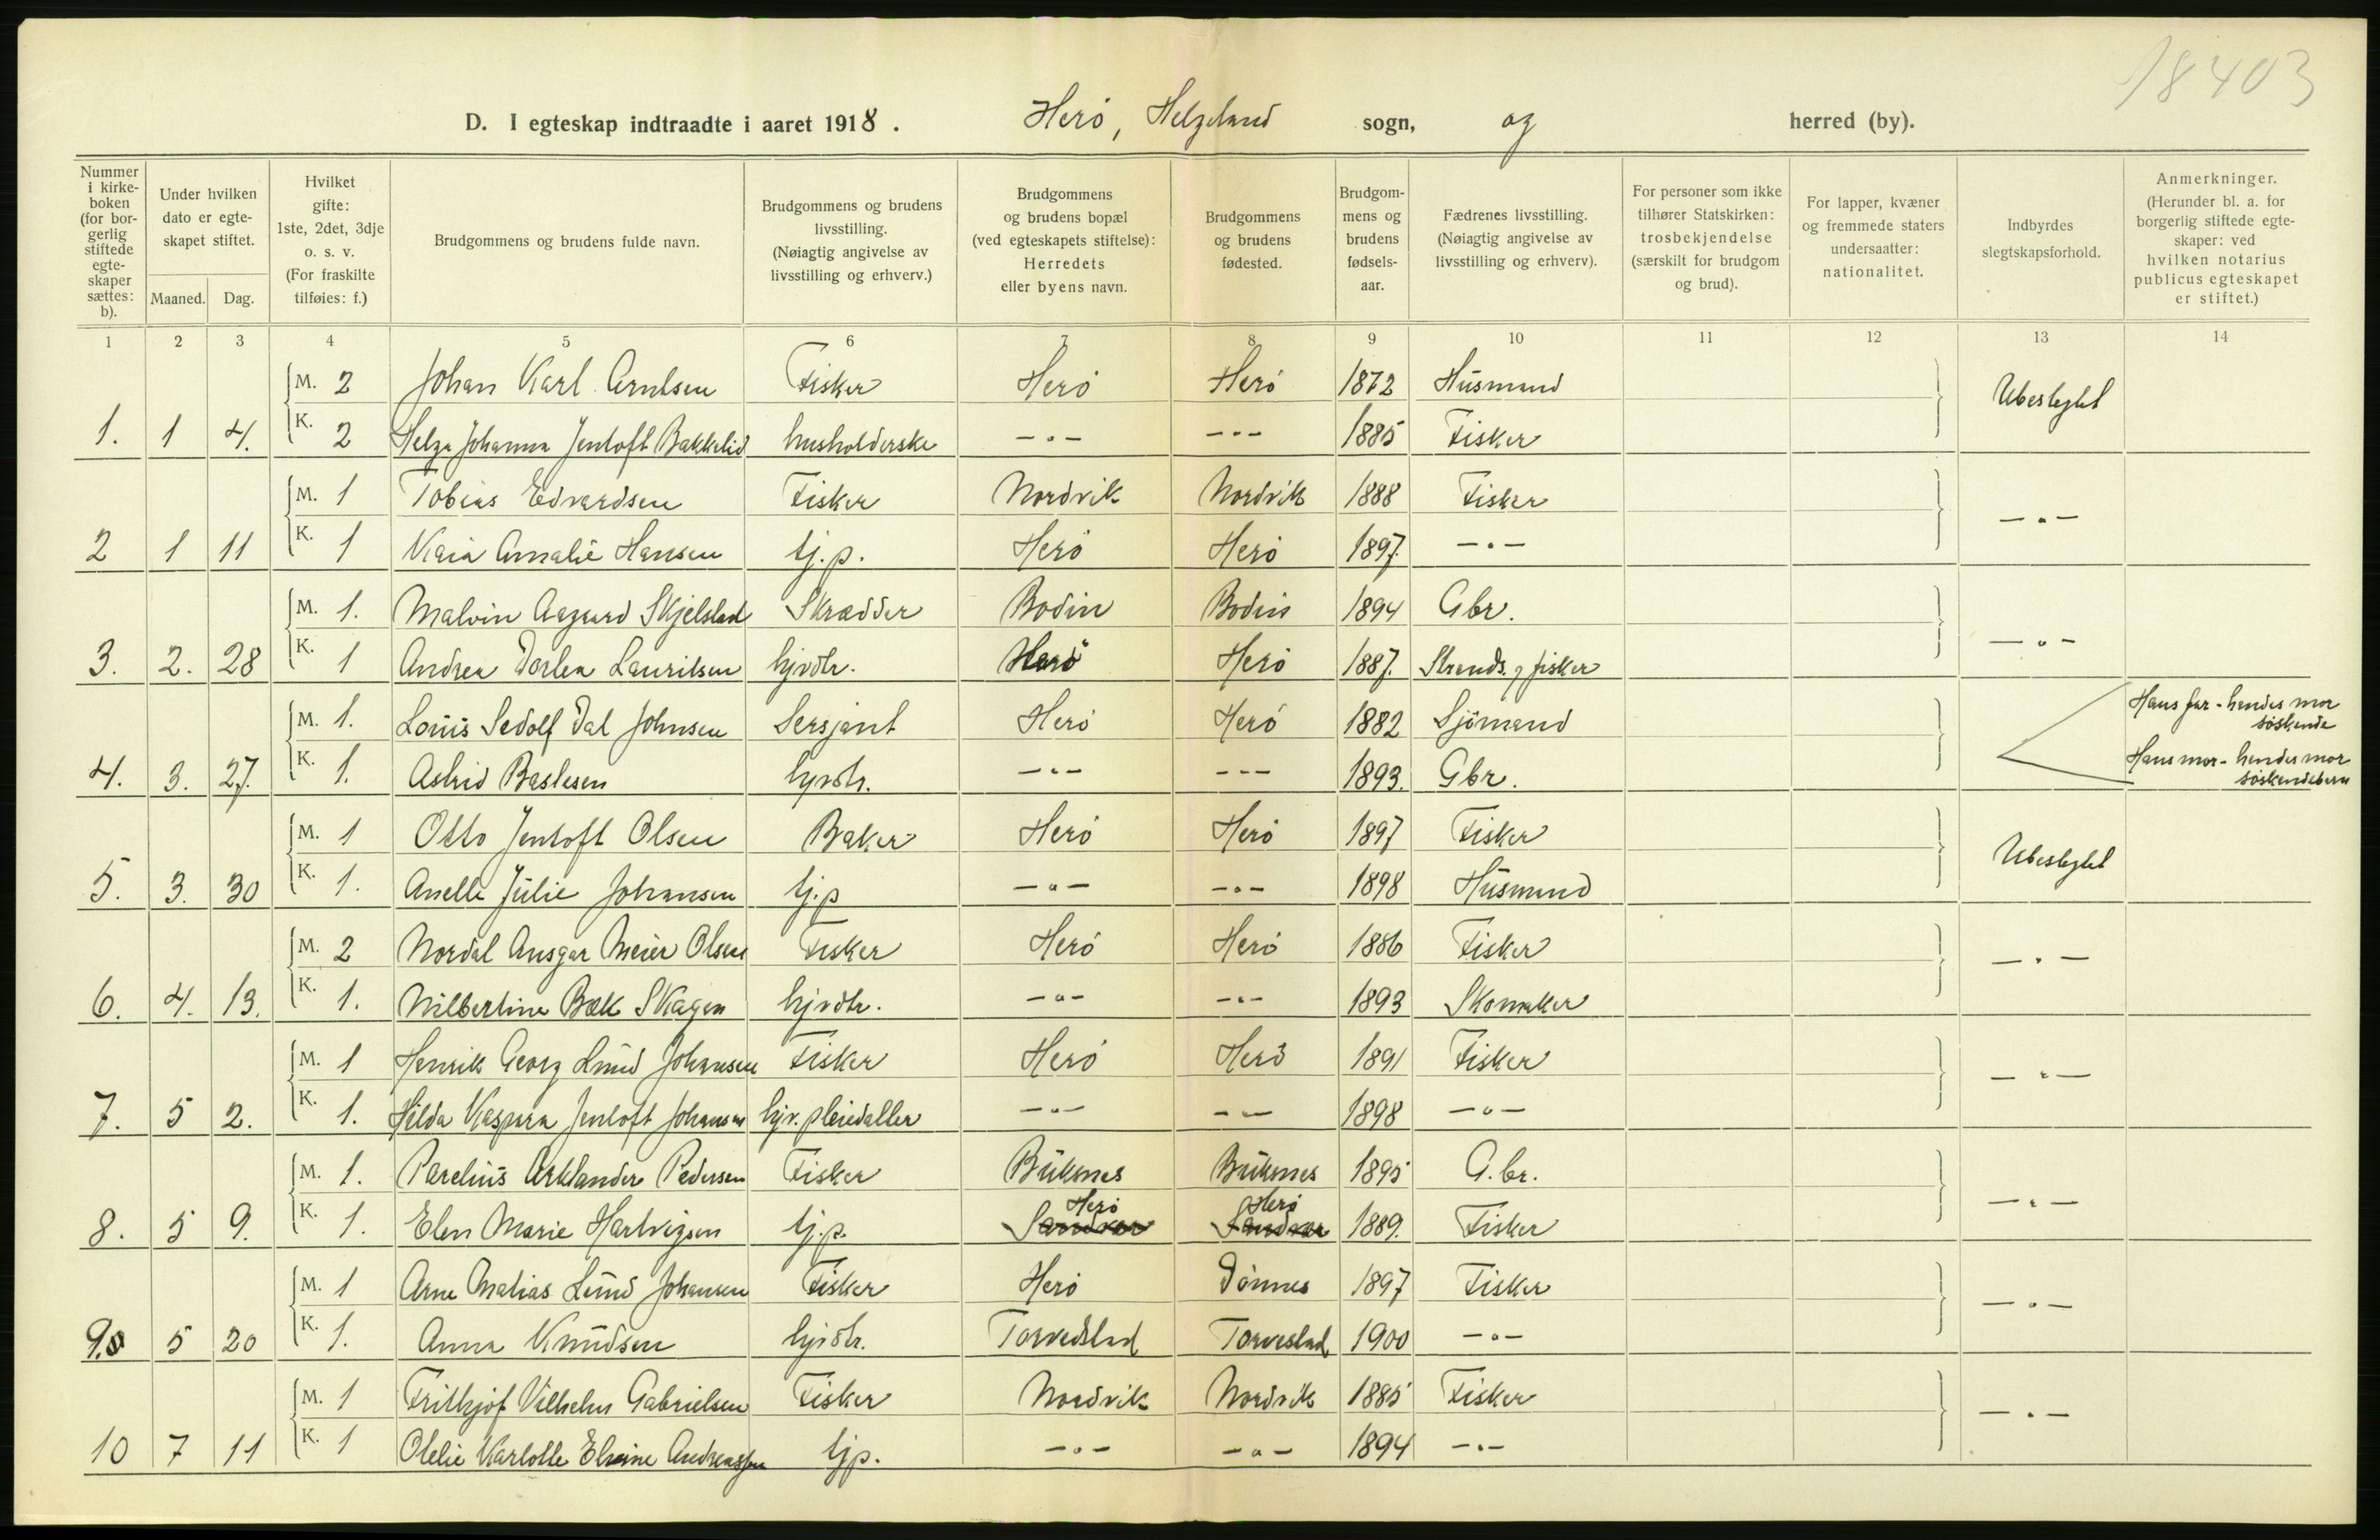 18403
D. I egteskap indtraadte i aaret 1918. Herö, Helgeland sogn, og herred (by).
Nummer i kirke-boken (for bor-gerlig stiftede egte-skaper sættes: b).
Under hvilken dato er egte-skapet stiftet.
Maaned. Dag.
Hvilket gifte: 1ste, 2det, 3dje o. s. v. (For fraskilte tilføies: f.)
Brudgommens og brudens fulde navn.
Brudgommens og brudens livsstilling. (Nøiagtig angivelse av livsstilling og erhverv.)
Brudgommens og brudens bopæl (ved egteskapets stiftelse): Herredets eller byens navn.
Brudgommens og brudens fødested.
Brudgom-mens og brudens fødsels-aar.
Fædrenes livsstilling. (Nøiagtig angivelse av livsstilling og erhverv).
For personer som ikke tilhører Statskirken: trosbekjendelse (særskilt for brudgom og brud).
For lapper, kvæner og fremmede staters undersaatter: nationalitet.
Indbyrdes slegtskapsforhold.
Anmerkninger. (Herunder bl. a. for borgerlig stiftede egte-skaper: ved hvilken notarius publicus egteskapet er stiftet.)
1 2 3 4 5 6 7 8 9 10 11 12 13 14
M. 2 Johan Karl Arntsen Fisker Herö Herö 1872 Husmand Ubeslegtet
1. 1 4. K. 2 Helga Johanna Jentoft Bakkelid husholderske -"- -"- 1885 Fisker
M. 1 Tobias Edvardsen Fisker Nordvik Nordvik 1888 Fisker -"-
2 1 11 K. 1 Kaia Amalie Hansen tj.p. Herö Herö 1897. -"-
M. 1. Malvin Aagaard Skjelstad Skrædder Bodin Bodin 1894 Gbr. -"-
3. 2. 28 K. 1 Andrea Dorlea Lauritsen hjvdtr. Herö Herö 1887. Strands. og fisker
M. 1. Louis Sedolf Dal Johnsen Sersjant Herö Herö 1882 Sjömand Hans far - hendes mor söskende
4. 3. 27. K. 1. Astrid Bastesen hjvdtr. -"- -"- 1893. Gbr. Hans mor - hendes mor söskendebarn
M. 1 Otto Jentoft Olsen Baker Herö Herö 1897 Fisker Ubeslegtet
5. 3. 30 K. 1. Anelle Julie Johansen tj.p -"- -"- 1898 Husmand
M. 2 Nordal Ansgar Meier Olsen Fisker Herö Herö 1886 Fisker -"-
6. 4. 13. K. 1. Nilbertine Bæk Skagen hjvdtr. -"- -"- 1893 Skomaker
M. 1 Henrik Georg Lund Johansen Fisker Herö Herö 1891 Fisker -"-
7. 5 2. K. 1. Hilda Kaspara Jentoft Johansen hjv. pleiedatter -"- -"- 1898 -"-
M. 1. Parelius Arklander Pedersen Fisker Buksnes Buksnes 1895 G.br. -"-
8. 5 9. K. 1. Elen Marie Hartvigsen tj.p. Sandvær Herö Sandvær Herö 1889. Fisker
M. 1 Arne Matias Lund Johansen Fisker Herö Dönnes 1897 Fisker -"-
9. 5 20 K. 1. Anna Knudsen hjvdtr. Torvedstad Torvestad 1900 -"-
M. 1 Frithjof Vilhelm Gabrielsen Fisker Nordvik Nordvik 1885 Fisker -"-
10 7 11 K. 1 Olelie Karlotte Elvine Andreassen tjp. -"- -"- 1894 -"-